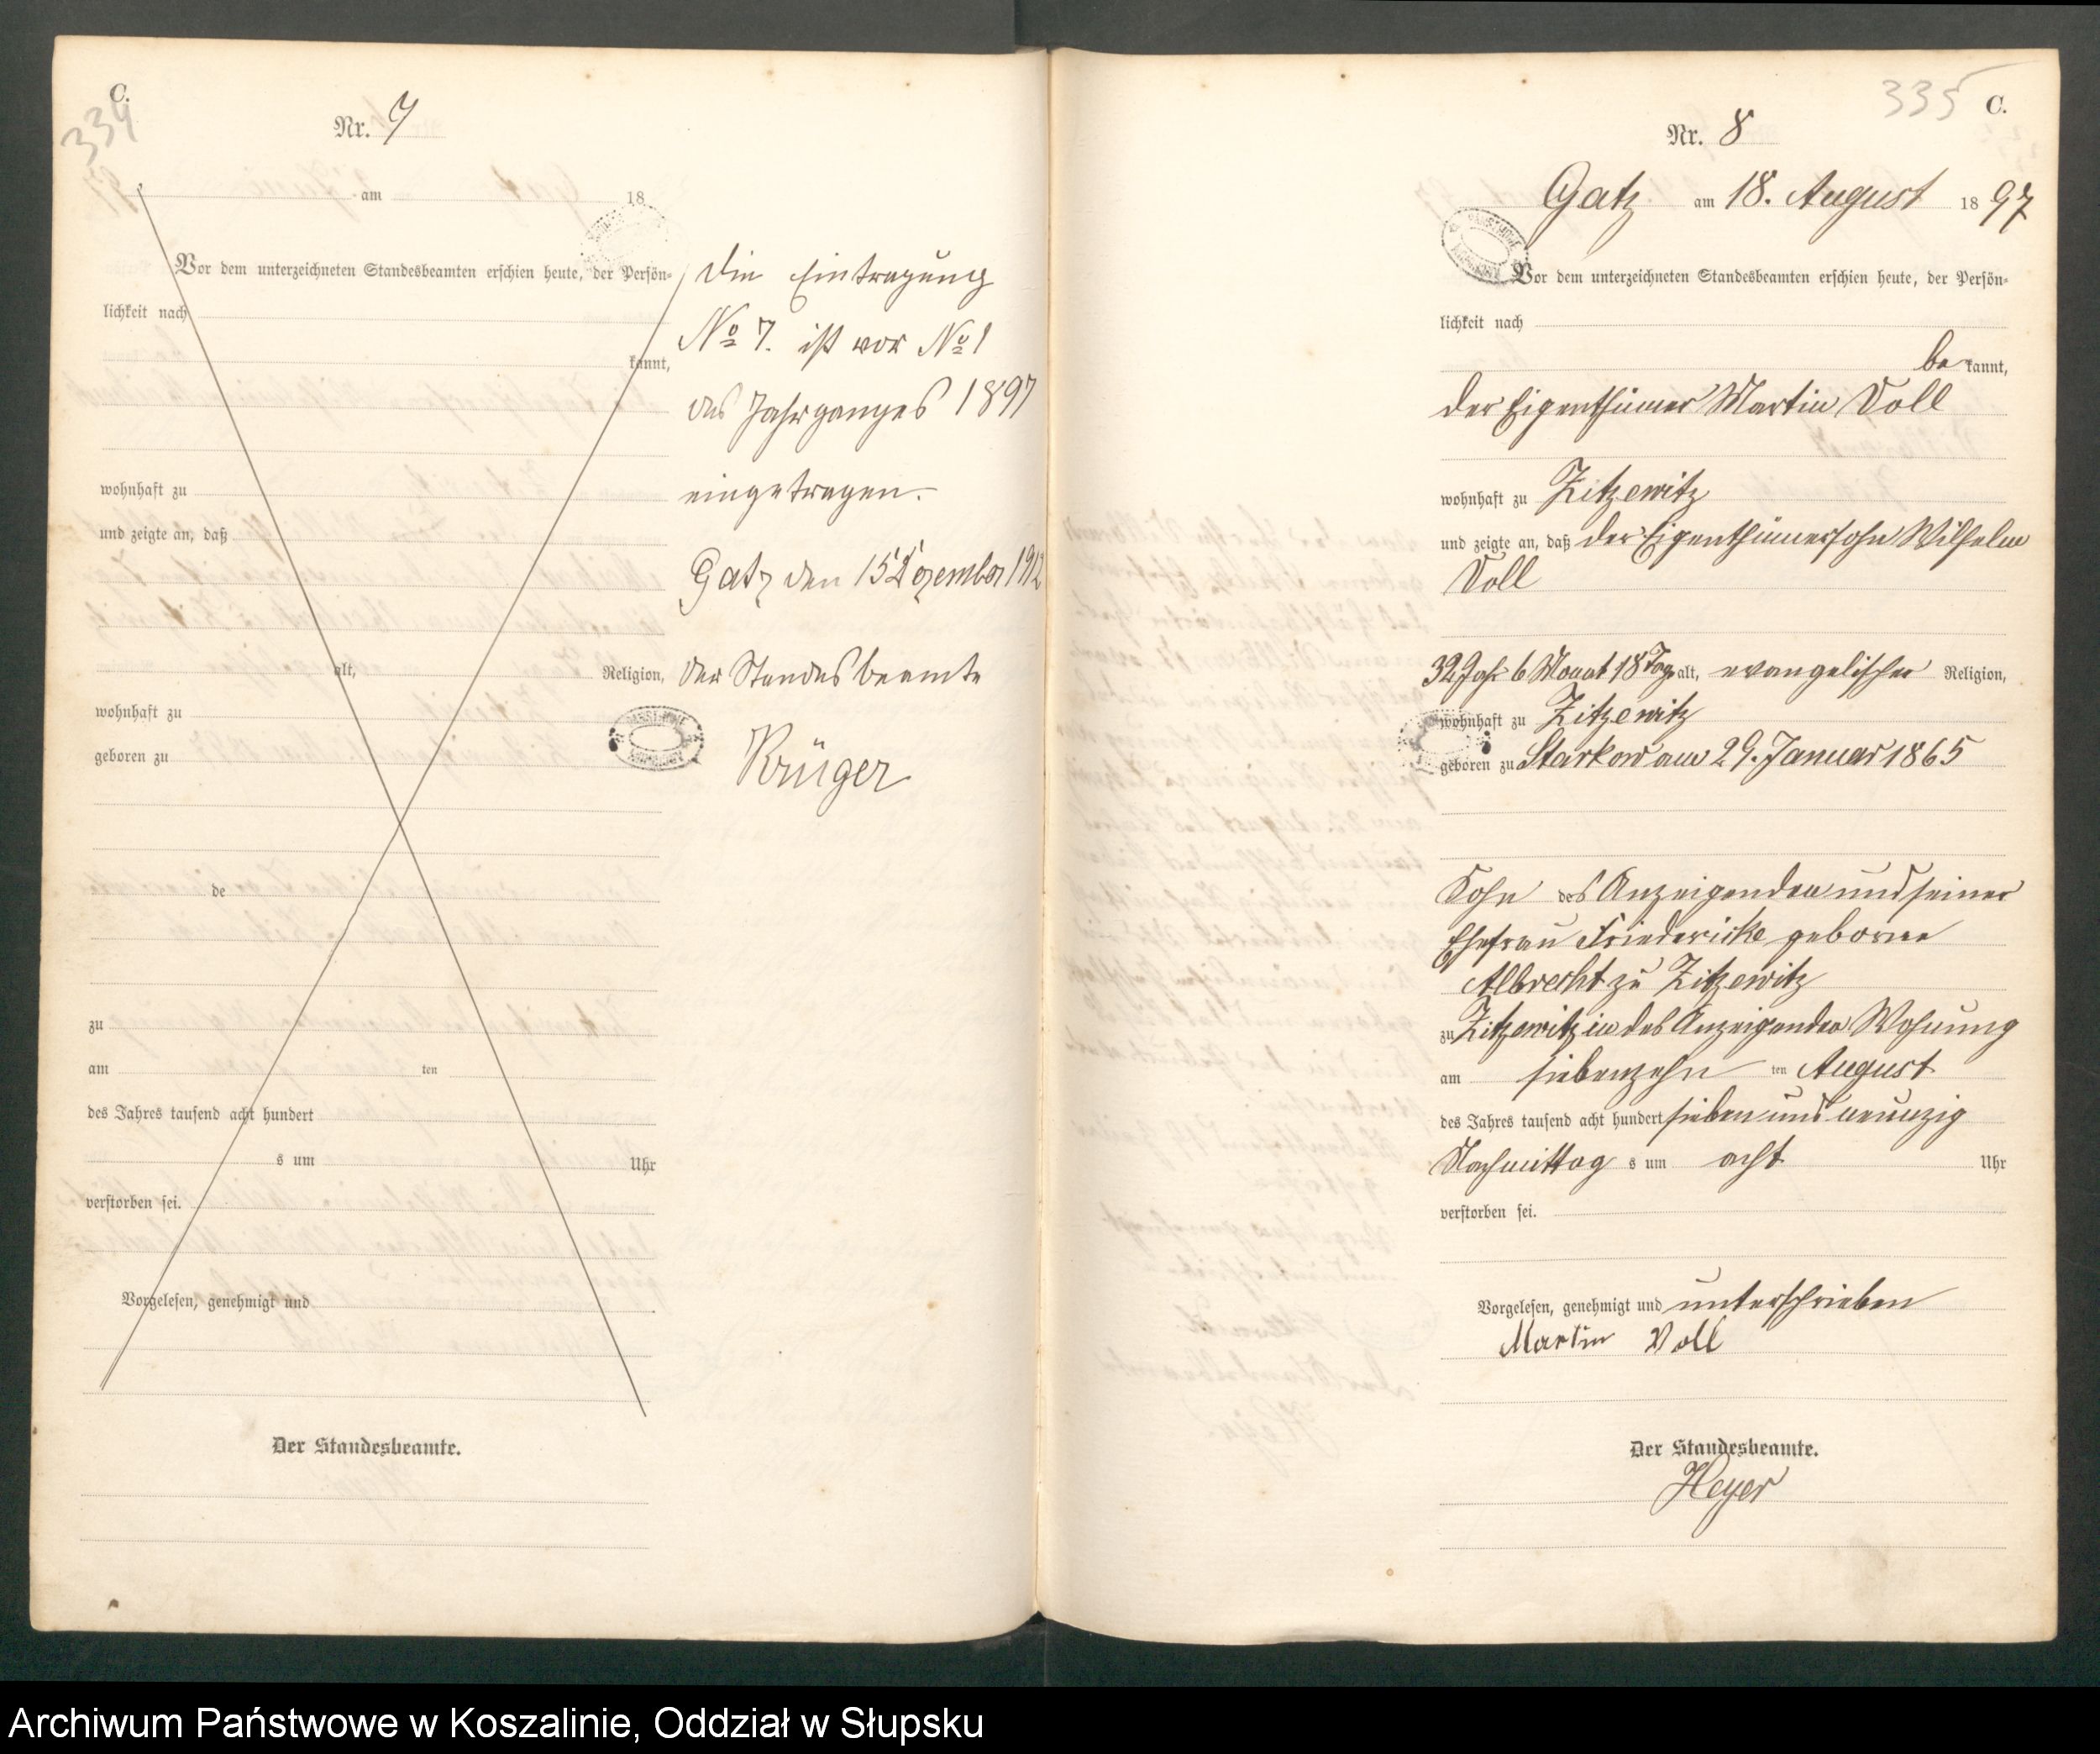 C.
334
Nr. 7
am 18
Vor dem unterzeichneten Standesbeamten erschien heute, der Persön-
lichkeit nach
kannt,
wohnhaft zu
und zeigte an, daß
alt, Religion,
wohnhaft zu
geboren zu
de
zu
am ten
des Jahres tausend acht hundert
s um Uhr
verstorben sei.
Vorgelesen, genehmigt und
Der Standesbeamte.
Die Eintragung
No 7. ist vor No 1
des Jahrganges 1897
eingetragen.
Gatz den 15 Dezember 1912
Der Standesbeamte
Krüger
335 C.
Nr. 8
Gatz am 18. August 1897
Vor dem unterzeichneten Standesbeamten erschien heute, der Persön-
lichkeit nach
be kannt,
der Eigenthümer Martin Voll
wohnhaft zu Zitzewitz
und zeigte an, daß der Eigenthümersohn Wilhelm
Voll
32 Jahr 6 Monat 18 Tage alt, evangelischer Religion,
wohnhaft zu Zitzewitz
geboren zu Starkow am 29. Januar 1865
Sohn des Anzeigenden und seiner
Ehefrau Friedericke geborne
Albrecht zu Zitzewitz
zu Zitzewitz in des Anzeigenden Wohnung
am siebenzehn ten August
des Jahres tausend acht hundert sieben und neunzig
Nachmittag s um acht Uhr
verstorben sei.
Vorgelesen, genehmigt und unterschrieben
Martin Voll
Der Standesbeamte.
Heyer
Archiwum Państwowe w Koszalinie, Oddział w Słupsku